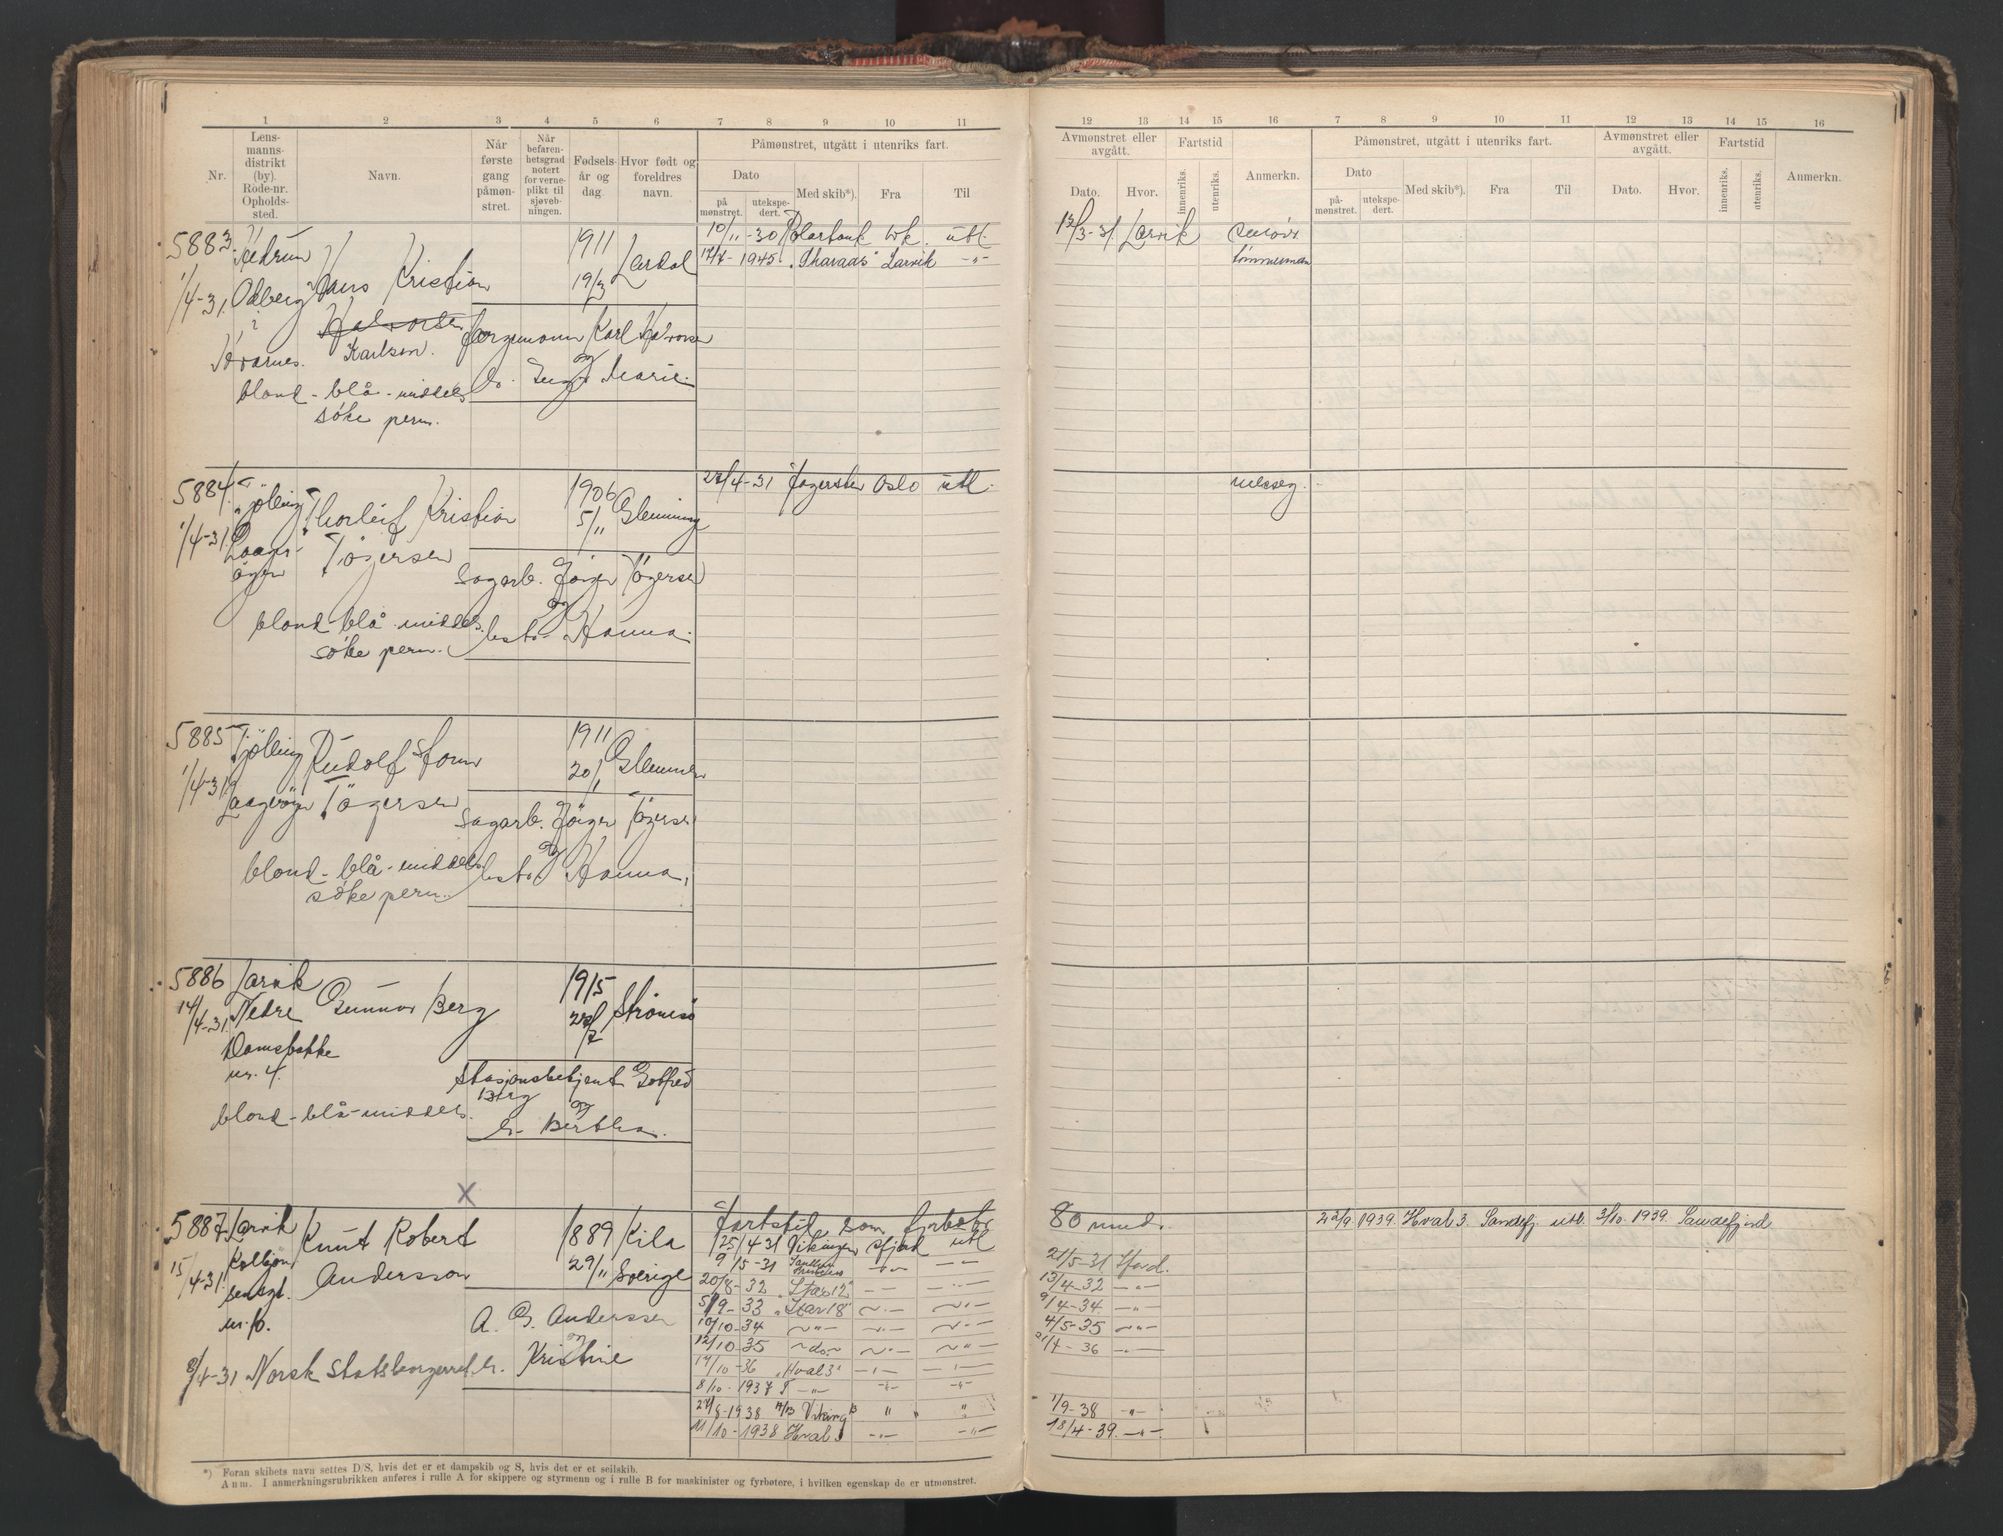 1 2 3 4 5 6 7 8 9 10 11
Nr.
Lens-
manns-
distrikt
(by).
Rode-nr.
Opholds-
sted.
Navn.
Når
første
gang
påmøn-
stret.
Når
befaren-
hetsgrad
notert
for verne-
plikt til
sjøveb-
ningen.
Fødsels-
år og
dag.
Hvor født og
foreldres
navn.
Påmønstret, utgått i utenriks fart.
Dato
på
mønstret.
utekspe-
dert.
Med skib*).
Fra
Til
12 13 14 15 16 7 8 9 10 11 12 13 14 15 16
Avmønstret eller
avgått.
Dato.
Hvor.
Fartstid
innenriks.
utenriks.
Anmerkn.
Påmønstret, utgått i utenriks fart.
Dato
på-
mønstret.
utekspe-
dert.
Med skib*).
Fra
Til
Avmønstret eller
avgått.
Dato.
Hvor.
Fartstid
innenriks.
utenriks.
Anmerkn.
5883
1/4-31.
Hedrum
Odberg
?
Kvarnes.
Hans Kristian
Halvorsen
Karlsen.
1911
19/3
Lardal
Karl Halvorsen
og
h. Inga Marie.
blond - blå - middels
søke perm.
10/11-30 Polartank utl
17/7-1945. "Tharaas" Larvik -"-
13/3-31. Larvik
tømmermann
5884
1/4-31
Tjølling
Laager-
øyen
Thorleif Kristian
Tøgersen
1906
5/11
Glemminge
Sagarb. Jørgen Tøgersen
og
hst. Hanna.
blond - blå - middels.
søke perm.
27/4-31 Jagersten Oslo utl.
5885
1/4-31
Tjølling
Laagerøyen
Rudolf Storm
Tøgersen
1911
20/1
Glemmen
Sagarb. Jørgen Tøgersen
og
hst. Hanna.
blond - blå - middels.
søke perm.
5886
14/4-31.
Larvik
Nedre
Damsbakke
nr. 4.
Gunnar Berg
1915
27/7
Strømsø
Stasjonsbetjent Gotfred
Berg
og
h. Bertha.
blond - blå - middels.
X
5887
15/4-31.
Larvik
Kolbjørn-
sensgt.
nr. 10.
Knut Robert
Andersson
1889
29/11
Kila
Sverige
A. G. Andersson
og
h. Kristine
8/4-31 Norsk Statsborgerret
Fartstid som fyrbøter
25/4 31 Vikingen Sfjord utl
9/5-31 -"- -"-
20/8-32 "Star 12" -"- -"-
5/9-33 "Star 18" -"- -"-
10/10-34 -"- -"- -"-
12/10-35 -do- -"- -"-
14/10-36 "Hval 3" -"- -"-
8/10-1937 -"- -"- -"-
27/8-1938 Viking " "
11/10-1938 Hval 3 -"- -"-
80 mnd.
21/5-31 Sfjord.
13/4-32 -"-
9/4-34 -"-
4/5-35 -"-
21/4-36 -"-
1/9-38 -"-
18/4-39. -"-
22/9. 1939. Hval 3. Sandefj. utl. 3/10. 1939. Sandefjord.
*) Foran skibets navn settes D/S, hvis det er et dampskib og S, hvis det er et seilskib.
Anm. I anmerkningsrubrikken anføres i rulle A for skippere og styrmenn og i rulle B for maskinister og fyrbøtere, i hvilken egenskap de er utmønstret.